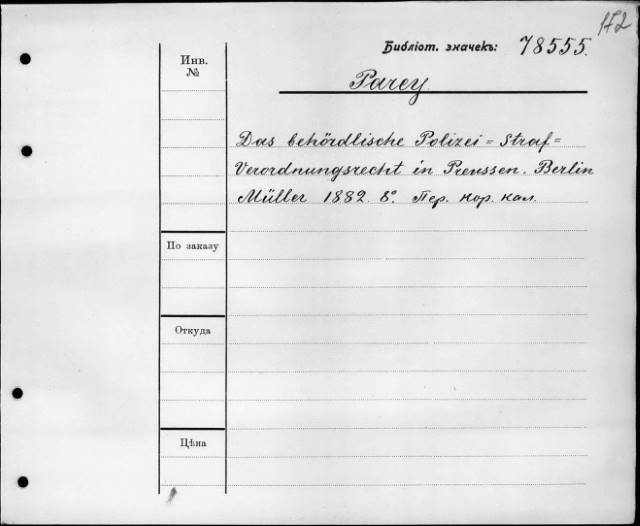 172
Библіот. значекъ: 78555.
Инв.
№
Parey
Das behördlische Polizei=Straf=
Verordnungsrecht in Preussen. Berlin
Müller 1882. 8°. Пер. кор. кал.
По заказу
Откуда
Цѣна